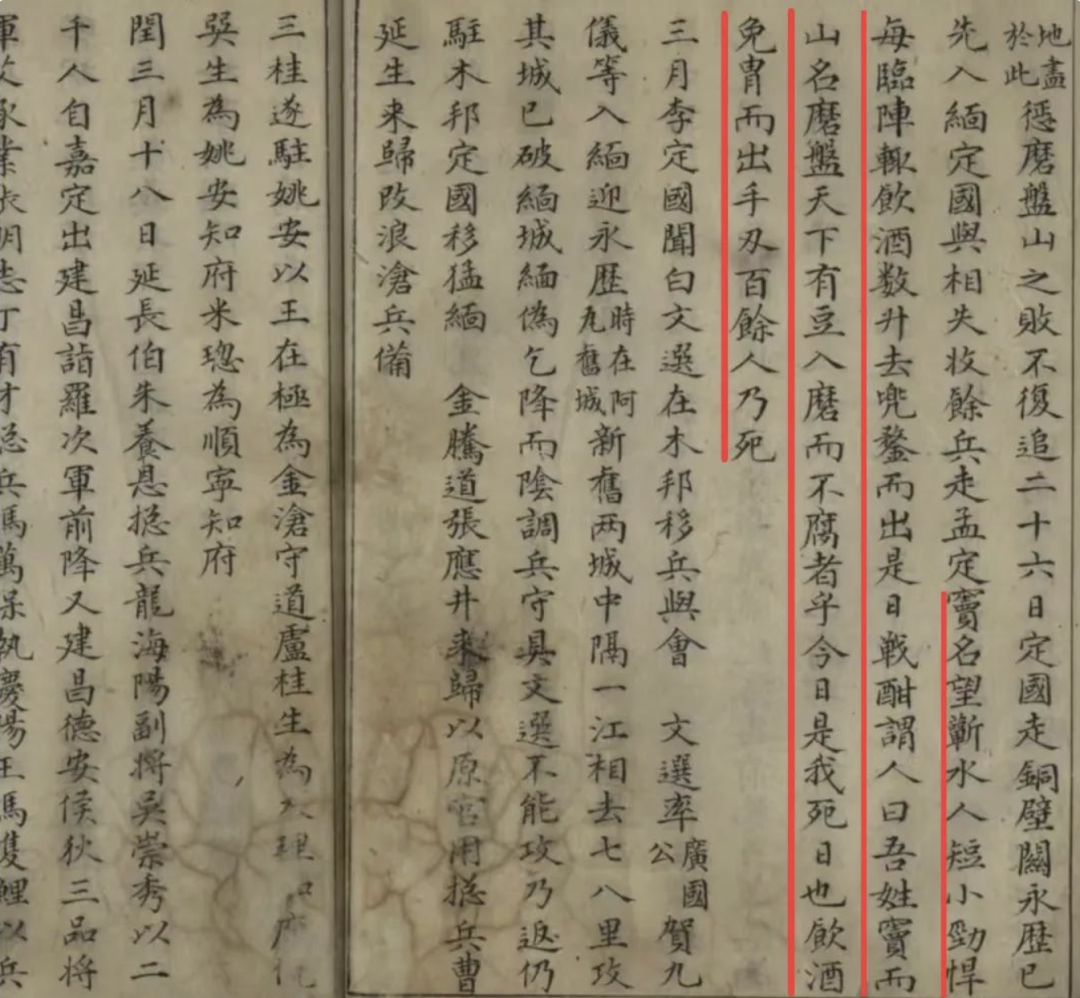 地盡於此懲磨盤山之敗不復追二十六日定國走銅壁關永歷已
先入緬定國與相失收餘兵走孟定竇名望蘄水人短小勁悍
每臨陣輒飲酒数升去兜鍪而出是日戰酣謂人曰吾姓竇而
山名磨盤天下有豆入磨而不腐者乎今日是我死日也飲酒
免冑而出手刃百餘人乃死
三月李定國聞白文選在木邦移兵與會 文選率廣國公賀九
儀等入緬迎永歷時在阿九舊城新舊两城中隔一江相去七八里攻
其城已破緬城緬偽乞降而陰調兵守具文選不能攻乃返仍
駐木邦定國移猛緬 金騰道張應井來歸以原官用揔兵曹
延生来歸改浪滄兵備
三桂遂駐姚安以王在極為金滄守道盧桂生為大理
巽生為姚安知府米璁為順寧知府
閏三月十八日延長伯朱養恩揔兵龍海陽副將吳崇秀以二
千人自嘉定出建昌詣羅次軍前降又建昌德安侯狄三品將